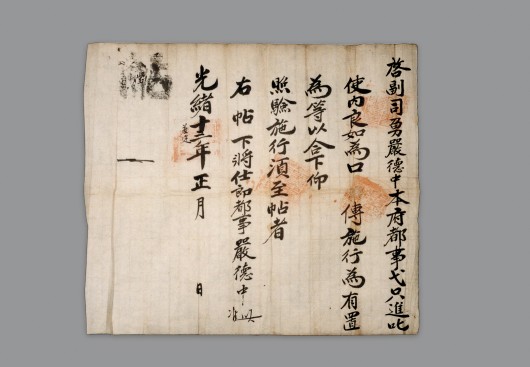 啓副司勇嚴德中本府都事弋只進叱
使內良如為口 傳施行為有置
為等以合下仰
照驗施行湏至帖者
右帖下將仕郎都事嚴德中
光緒十三年正月 日